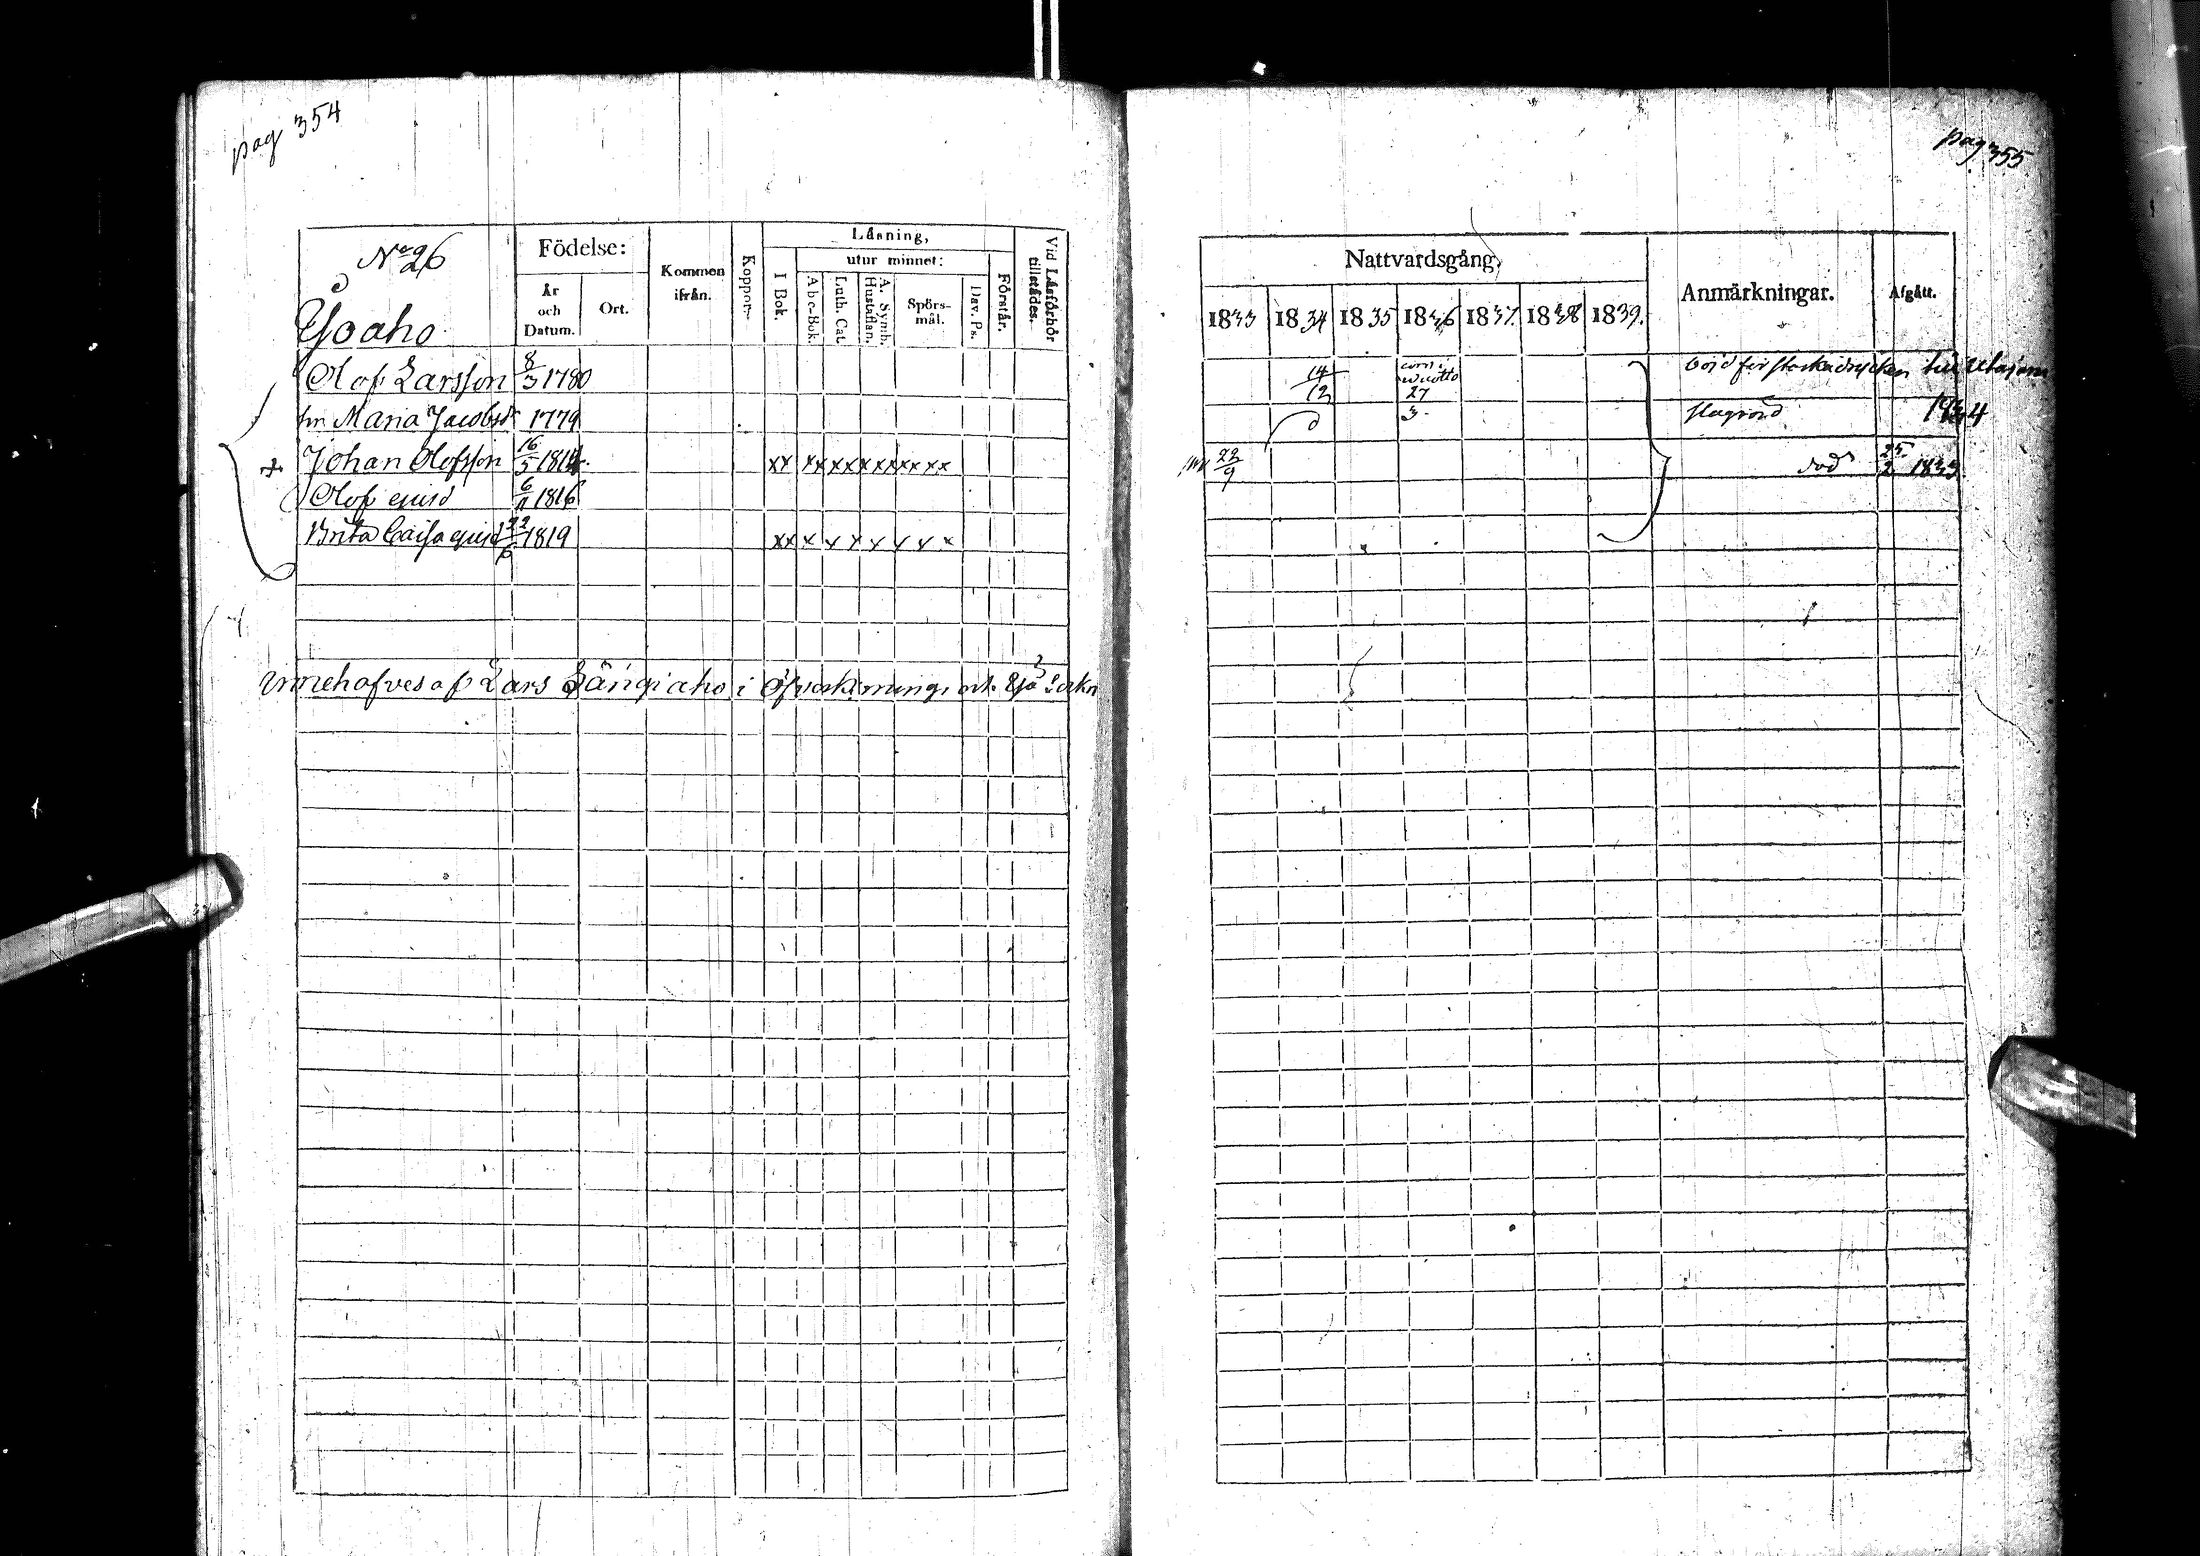 pag 354
No 26
Födelse:
År
och
Datum.
Ort.
Kommen
ifrån.
Koppor.
Läsning,
I Bok.
utur minnet:
Abc-Bok.
Luth. Cat.
A. Symb.
Hustaflan.
Spörs-
mål.
Dav. Ps.
Förstår.
Vid Läsförhör
tillstädes.
Olof Larsson 8/3 1780
hu Maria Jacobsdr 1779
Johan Olofsson 16/5 1814. xx xxxxxxxxxxx
Olof ejusd 6/11 1816
Brita Caisa ejusd 22/6 1819 xx x x x x x x x
innehafves af Lars Längiaho i
pag 355
Nattvardsgång,
1833 1834 1835 1836 1837. 1838 1839.
Anmärkningar.
Afgått.
14/12
27
3
1834
22/9 död 25/2 1833